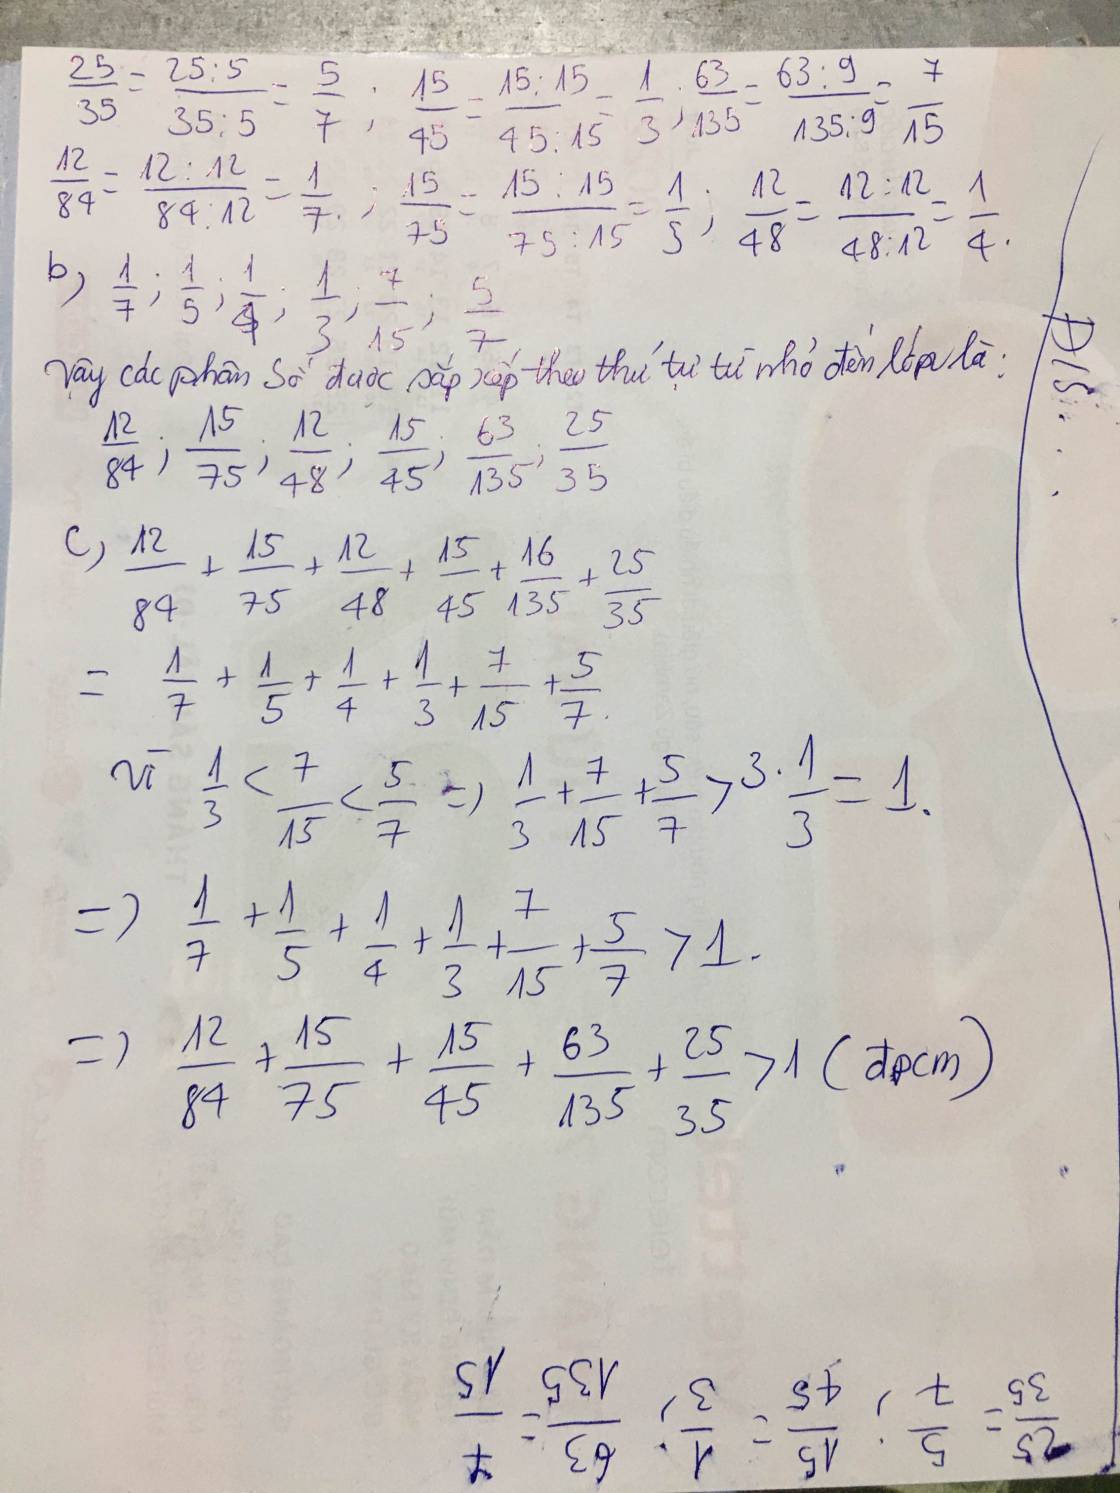 25/35 = 25:5/35:5 = 5/7 ; 15/45 = 15:15/45:15 = 1/3 ; 63/135 = 63:9/135:9 = 7/15
12/84 = 12:12/84:12 = 1/7. ; 15/75 = 15:15/75:15 = 1/5 ; 12/48 = 12:12/48:12 = 1/4.
b, 1/7 ; 1/5 ; 1/4 ; 1/3 ; 7/15 ; 5/7
Vậy các phân số được sắp xếp theo thứ tự từ nhỏ đến lớn là:
12/84 ; 15/75 ; 12/48 ; 15/45 ; 63/135 ; 25/35
c, 12/84 + 15/75 + 12/48 + 15/45 + 16/135 + 25/35
= 1/7 + 1/5 + 1/4 + 1/3 + 7/15 + 5/7.
Vì 1/3 < 7/15 < 5/7 => 1/3 + 7/15 + 5/7 > 3.1/3 = 1.
=> 1/7 + 1/5 + 1/4 + 1/3 + 7/15 + 5/7 > 1.
=> 12/84 + 15/75 + 15/45 + 63/135 + 25/35 > 1 (đpcm)
25/35 = 5/7 ; 15/45 = 1/3 ; 63/135 = 7/15